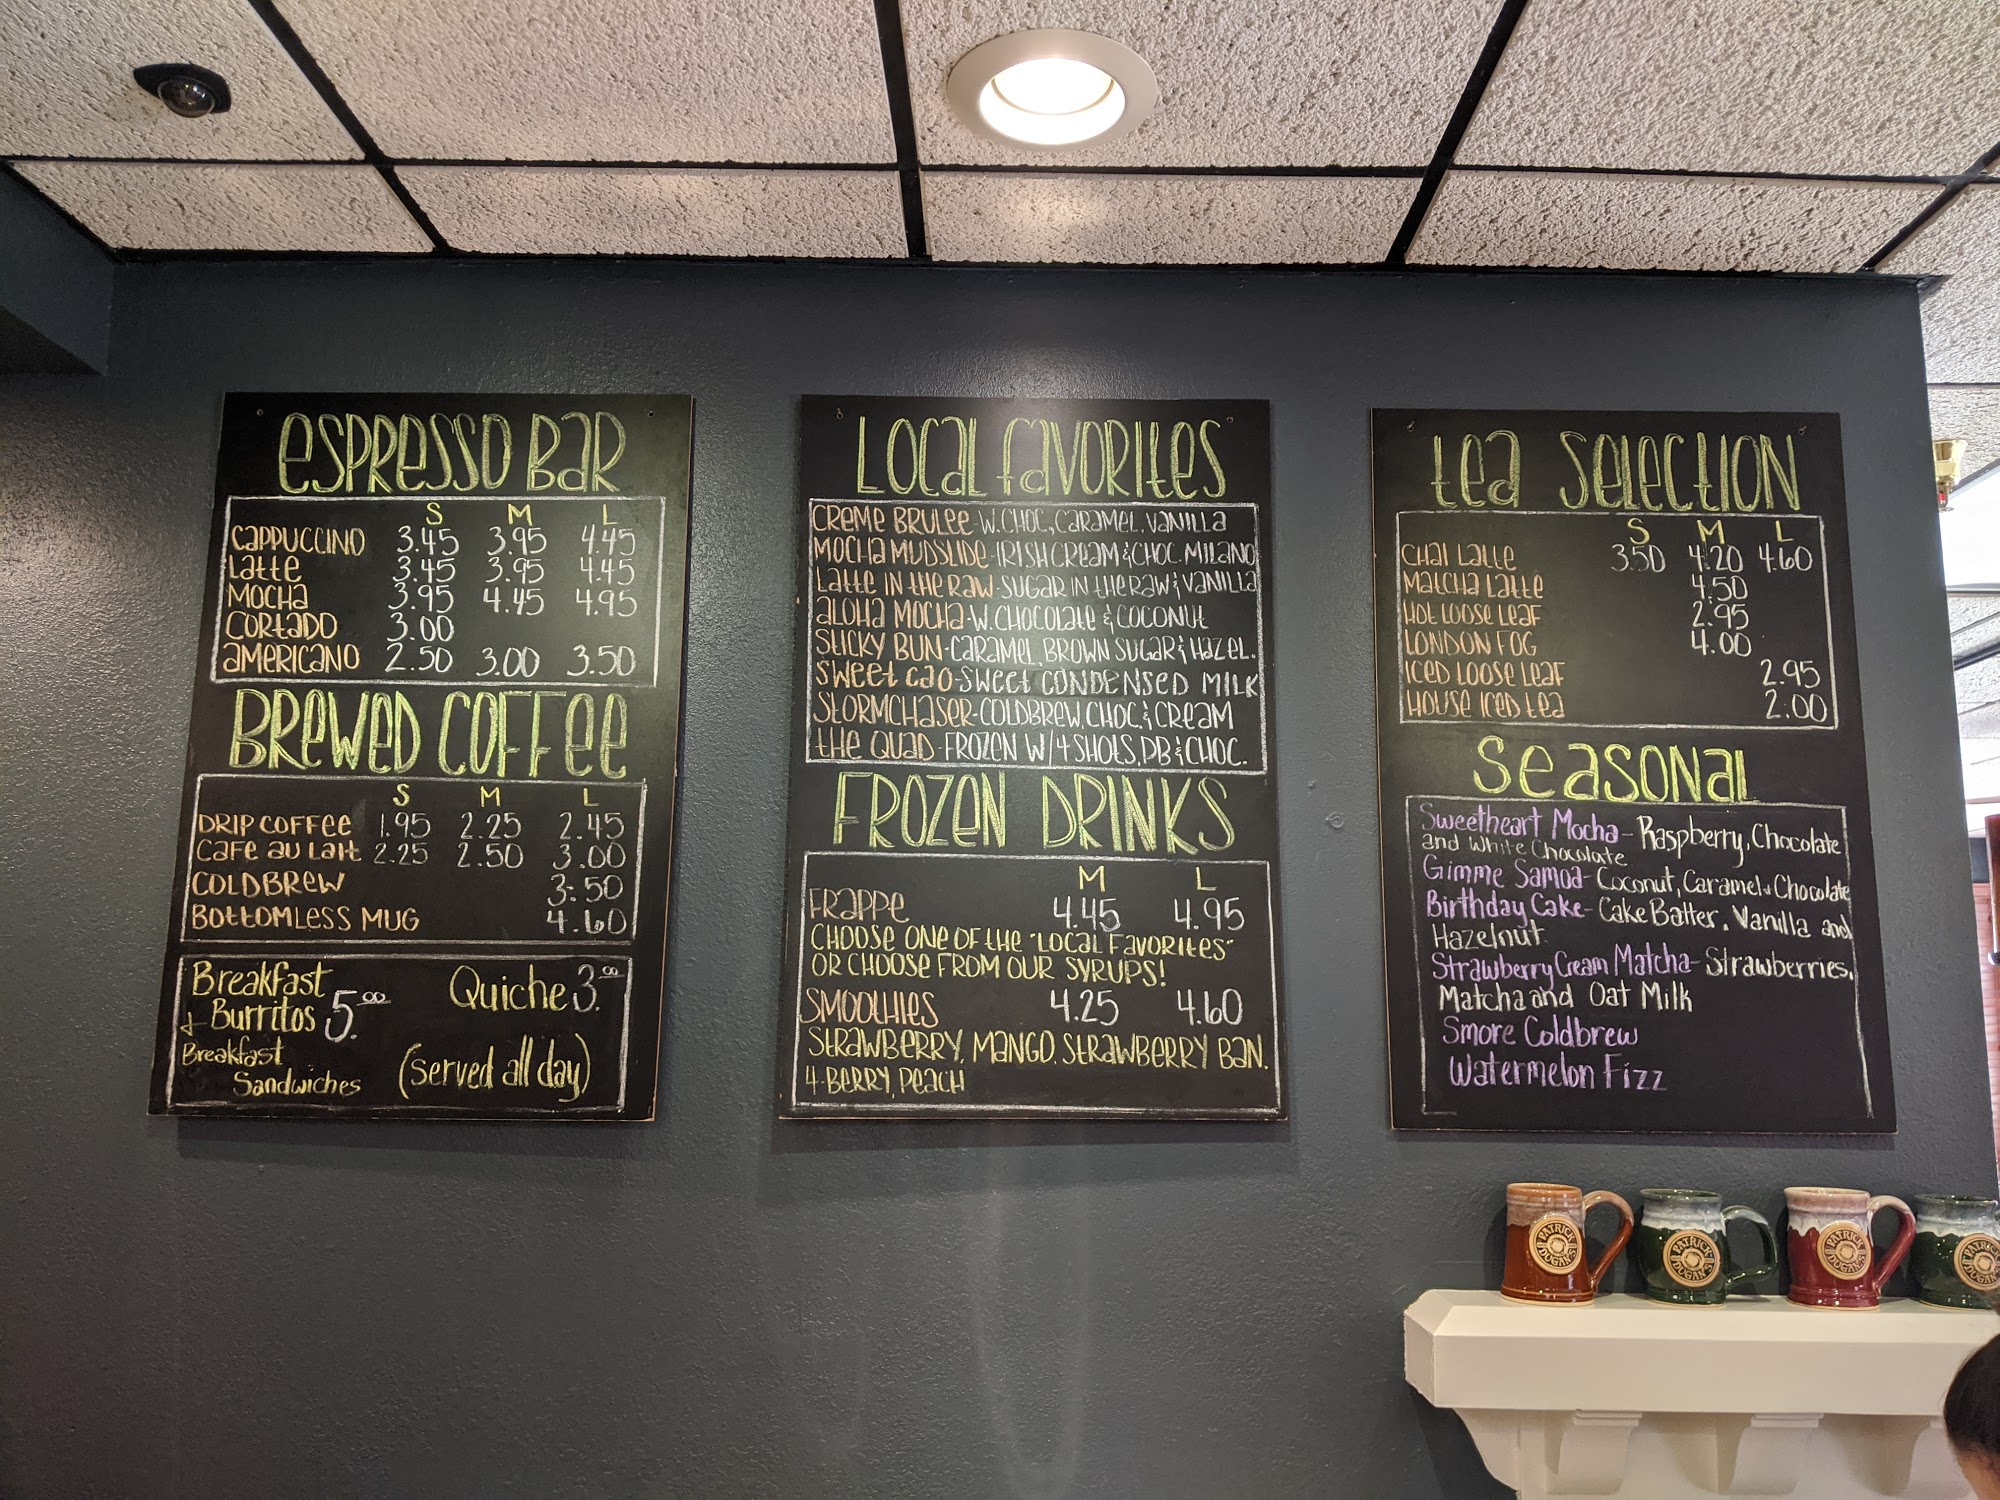 eSPRESSO BaR
S M L
CAPPUCCINO 3.45 3.95 4.45
Latte 3.45 3.95 4.45
MOCHa 3.95 4.45 4.95
CORtaDO 3.00
aMERICANO 2.50 3.00 3.50
BReWED COFFee
S M L
DRIP COFFee 1.95 2.25 2.45
Cafe au Lait 2.25 2.50 3.00
COLDBREW 3.50
BOttOMLESS MUG 4.60
Breakfast
+ Burritos 5.00 Quiche 3.00
Breakfast
Sandwiches (served all day)
LOCaL FaVORItES
CREME BRULEE-W.CHOC, CARAMEL, VANILLA
MOCHa MUDSLIDE-IRISH CREAM & CHOC. MILANO
LattE IN tHE RaW-SUGAR IN tHE RAW & VANILLA
aLOHa MOCHa-W. CHOCOLatE & COCONUt
StICKY BUN-CARAMEL, BROWN SUGAR & HAZEL.
SWEEt CaO-SWEEt CONDENSED MILK
StORMCHaSER-COLDBREW, CHOC. & CREAM
tHE QUaD-FROZEN W/4 SHOtS, PB & CHOC.
FROZEN DRINKS
M L
FRAPPE 4.45 4.95
CHOOSE ONE OF tHE "LOCaL FaVORItES"
OR CHOOSE FROM OUR SYRUPS!
SMOOtHIES 4.25 4.60
StRaWBERRY, MANGO, StRaWBERRY BAN.
4-BERRY, PEACH
tea SELECtION
S M L
CHaI LattE 3.50 4.20 4.60
MatCHa LattE 4.50
HOt LOOSE LEaF 2.95
LONDON FOG 4.00
ICED LOOSE LEaF 2.95
HOUSE ICED tEa 2.00
SeasONal
Sweetheart Mocha- Raspberry, Chocolate
and White Chocolate
Gimme Samoa- Coconut, Caramel + Chocolate
Birthday Cake- Cake Batter, Vanilla and
Hazelnut
Strawberry Cream Matcha- Strawberries,
Matcha and Oat Milk
Smore Coldbrew
Watermelon Fizz
PATRICK DUGAN'S
PATRICK DUGAN'S
PATRICK DUGAN'S
PATRICK DUGAN'S